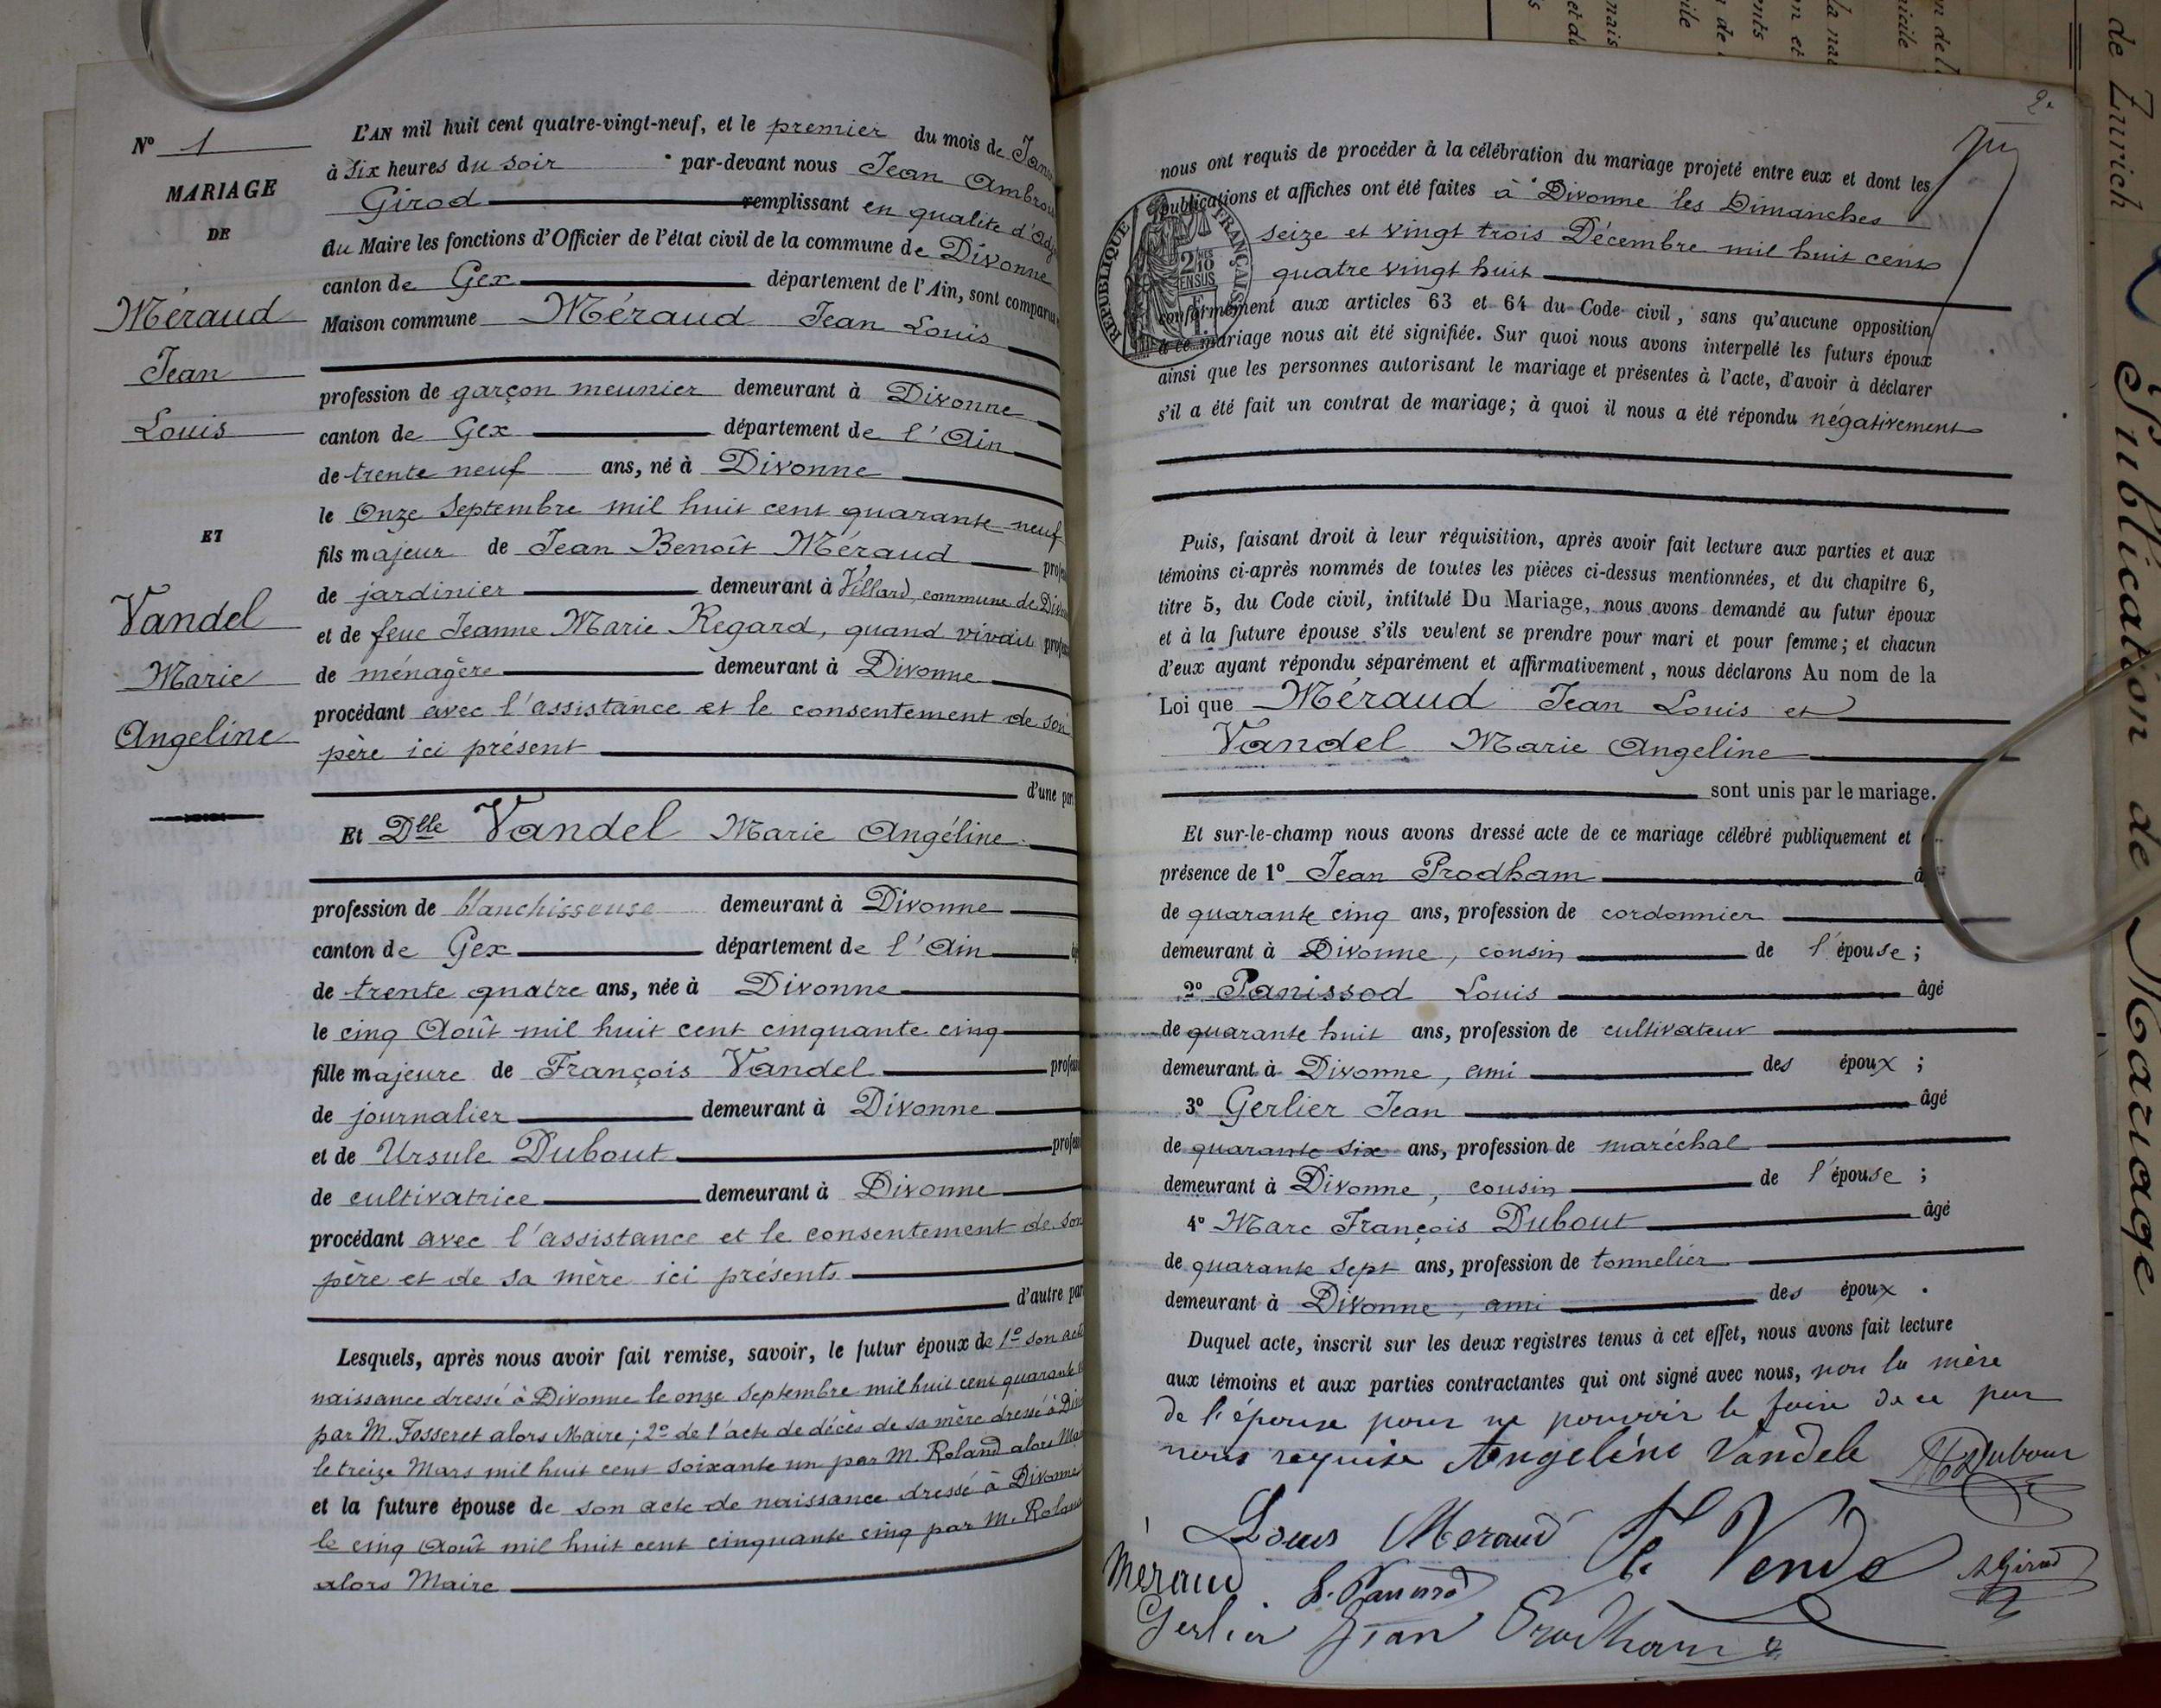 N° 1
MARIAGE
DE
Méraud
Jean
Louis
ET
Vandel
Marie
Angeline
L'AN mil huit cent quatre-vingt-neuf, et le premier du mois de Janv
à Six heures du soir par-devant nous Jean Ambrois
Girod remplissant en qualité d'Adj
du Maire les fonctions d'Officier de l'état civil de la commune de Divonne
canton de Gex département de l'Ain, sont comparus
Maison commune Méraud Jean Louis
profession de garçon meunier demeurant à Divonne
canton de Gex département de l'Ain
de trente neuf ans, né à Divonne
le Onze Septembre mil huit cent quarante neuf
fils majeur de Jean Benoît Méraud profes
de jardinier demeurant à Villard, commune de Divonn
et de feue Jeanne Marie Regard, quand vivait profes
de ménagère demeurant à Divonne
procédant avec l'assistance et le consentement de son
père ici présent
d'une part
Et Dlle Vandel Marie Angéline
profession de blanchisseuse demeurant à Divonne
canton de Gex département de l'Ain
de trente quatre ans, née à Divonne
le cinq Août mil huit cent cinquante cinq
fille majeure de François Vandel profess
de journalier demeurant à Divonne
et de Ursule Dubout profess
de cultivatrice demeurant à Divonne
procédant avec l'assistance et le consentement de son
père et de sa mère ici présents
d'autre part
Lesquels, après nous avoir fait remise, savoir, le futur époux de 1° son acte
naissance dressé à Divonne le onze Septembre mil huit cent quarante
par M. Fosseret alors Maire; 2° de l'acte de décès de sa mère dressé à Div
le treize Mars mil huit cent soixante un par M. Roland alors Mai
et la future épouse de son acte de naissance dressé à Divonne
le cinq Août mil huit cent cinquante cinq par M. Roland
alors Maire
2.
nous ont requis de procéder à la célébration du mariage projeté entre eux et dont les
publications et affiches ont été faites à Divonne les Dimanches
seize et vingt trois Décembre mil huit cent
quatre vingt huit
conformément aux articles 63 et 64 du Code civil, sans qu'aucune opposition
à ce mariage nous ait été signifiée. Sur quoi nous avons interpellé les futurs époux
ainsi que les personnes autorisant le mariage et présentes à l'acte, d'avoir à déclarer
s'il a été fait un contrat de mariage; à quoi il nous a été répondu négativement
RÉPUBLIQUE FRANÇAISE
2 10
EN SUS
Puis, faisant droit à leur réquisition, après avoir fait lecture aux parties et aux
témoins ci-après nommés de toutes les pièces ci-dessus mentionnées, et du chapitre 6,
titre 5, du Code civil, intitulé Du Mariage, nous avons demandé au futur époux
et à la future épouse s'ils veulent se prendre pour mari et pour femme; et chacun
d'eux ayant répondu séparément et affirmativement, nous déclarons Au nom de la
Loi que Méraud Jean Louis et
Vandel Marie Angeline
sont unis par le mariage.
Et sur-le-champ nous avons dressé acte de ce mariage célébré publiquement et
présence de 1° Jean Prodham
de quarante cinq ans, profession de cordonnier
demeurant à Divonne, cousin de l'épouse;
2° Panissod Louis âgé
de quarante huit ans, profession de cultivateur
demeurant à Divonne, ami des époux;
3° Gerlier Jean âgé
de quarante six ans, profession de maréchal
demeurant à Divonne, cousin de l'épouse;
4° Marc François Dubout âgé
de quarante sept ans, profession de tonnelier
demeurant à Divonne, ami des époux.
Duquel acte, inscrit sur les deux registres tenus à cet effet, nous avons fait lecture
aux témoins et aux parties contractantes qui ont signé avec nous, non la mère
de l'épouse pour ne pouvoir le faire de ce par
nous requise Angeline Vandele Dubout
Louis Meraud
Meraud L. Panissod Girod
Gerlier Jean Prodham
de Zurich
Publication de Mariage